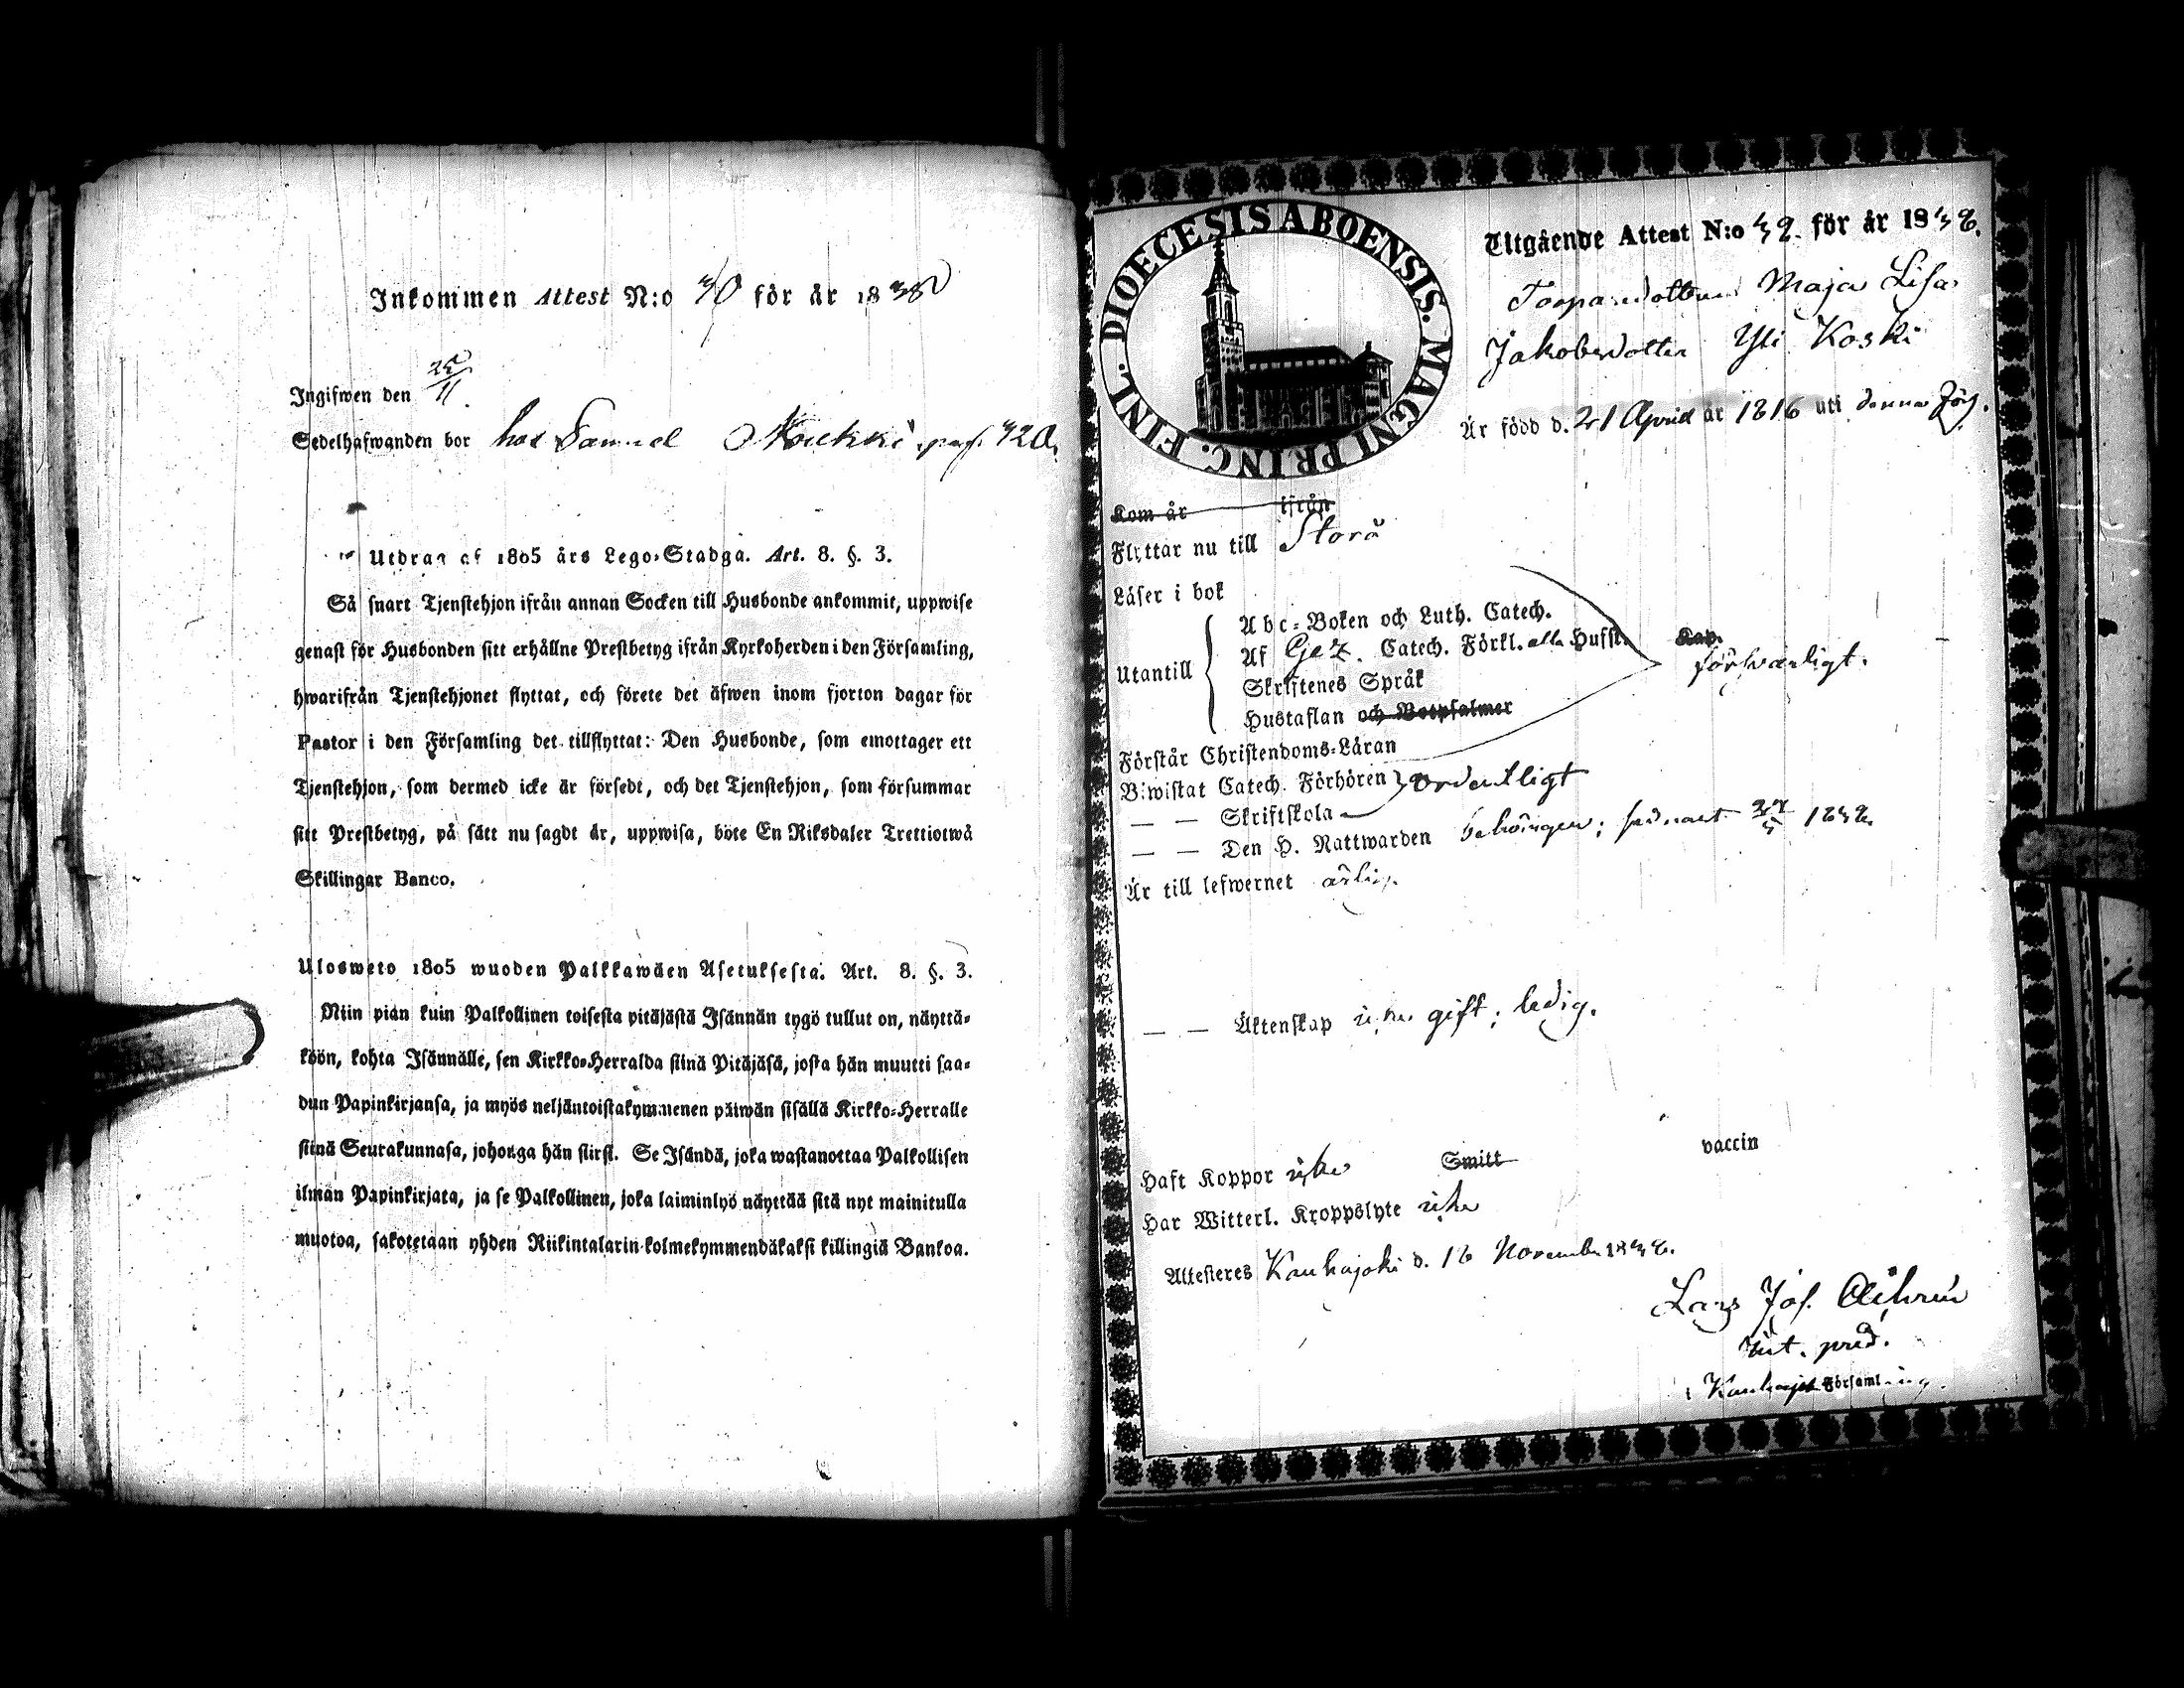 Inkommen Attest N:o 30 för år 1838
Ingifwen den 25/11
Sedelhafwanden bor hos Samuel Moukki pag. 420.
Utdrag af 1805 års Lego-Stadga. Art. 8. §. 3.
Så snart Tjenstehjon ifrån annan Socken till Husbonde ankommit, uppwise
genast för Husbonden sitt erhållne Prestbetyg ifrån Kyrkoherden i den Församling,
hwarifrån Tjenstehjonet flyttat, och förete det äfwen inom fjorton dagar för
Pastor i den Församling det tillflyttat: Den Husbonde, som emottager ett
Tjenstehjon, som dermed icke är försedt, och det Tjenstehjon, som försummar
sitt Prestbetyg, på sätt nu sagdt är, uppwisa, böte En Riksdaler Trettiotwå
Skillingar Banco.
Ulosweto 1805 wuoden Palkkawäen Asetuksesta. Art. 8. §. 3.
Niin pian kuin Palkollinen toisesta pitäjästä Isännän tygö tullut on, näyttä-
köön, kohta Isännälle, sen Kirkko-Herralda siinä Pitäjäsä, josta hän muutti saa-
dun Papinkirjansa, ja myös neljäntoistakymmenen päiwän sisällä Kirkko-Herralle
siinä Seurakunnasa, johonga hän siirsi. Se Isändä, joka wastanottaa Palkollisen
ilman Papinkirjata, ja se Palkollinen, joka laiminlyö näyttää sitä nyt mainitulla
muotoa, sakotetaan yhden Riikintalarin kolmekymmendäkaksi killingiä Bankoa.
DIOECESIS ABOENSIS. MAGNI PRINC. FINL.
Utgående Attest N:o 32. för år 1838.
Torparedottren Maja Lisa
Jakobsdotter Yli Koski
Är född d. 21 April år 1816 uti denna Förs.
Kom år ifrån
Flyttar nu till Storå
Läser i bok
Utantill
Abc-Boken och Luth. Catech.
Af Gez. Catech. Förkl. alla Hufst. Kap.
Skriftenes Språk
försvarligt.
Hustaflan och Botpsalmer
Förstår Christendoms-Läran
Biwistat Catech. Förhören ordentligt
— — Skriftskola
— — Den H. Nattwarden behörigen; senast 1838.
Är till lefwernet ärlig.
— — Äktenskap icke gift; ledig.
Haft Koppor icke Smitt vaccin
Har Witterl. Kroppslyte icke
Attesteras Kauhajoki d. 16 November 1838.
Lars Jos.
pred.
i Kauhajoki Församling.